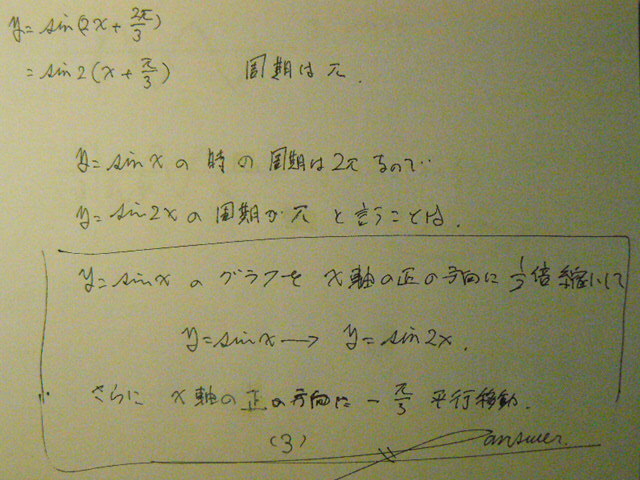 y=sin(2x+2π/3)
=sin2(x+π/3) 周期は π.
y=sinxの 時の 周期は2πなので..
y=sin2xの周期がπと言うことは.
y=sinxのグラフを x軸の正の方向に 1/2倍縮小して
y=sinx→ y=sin2x.
さらに x軸の正の方向に -π/3 平行移動.
(3) answer.